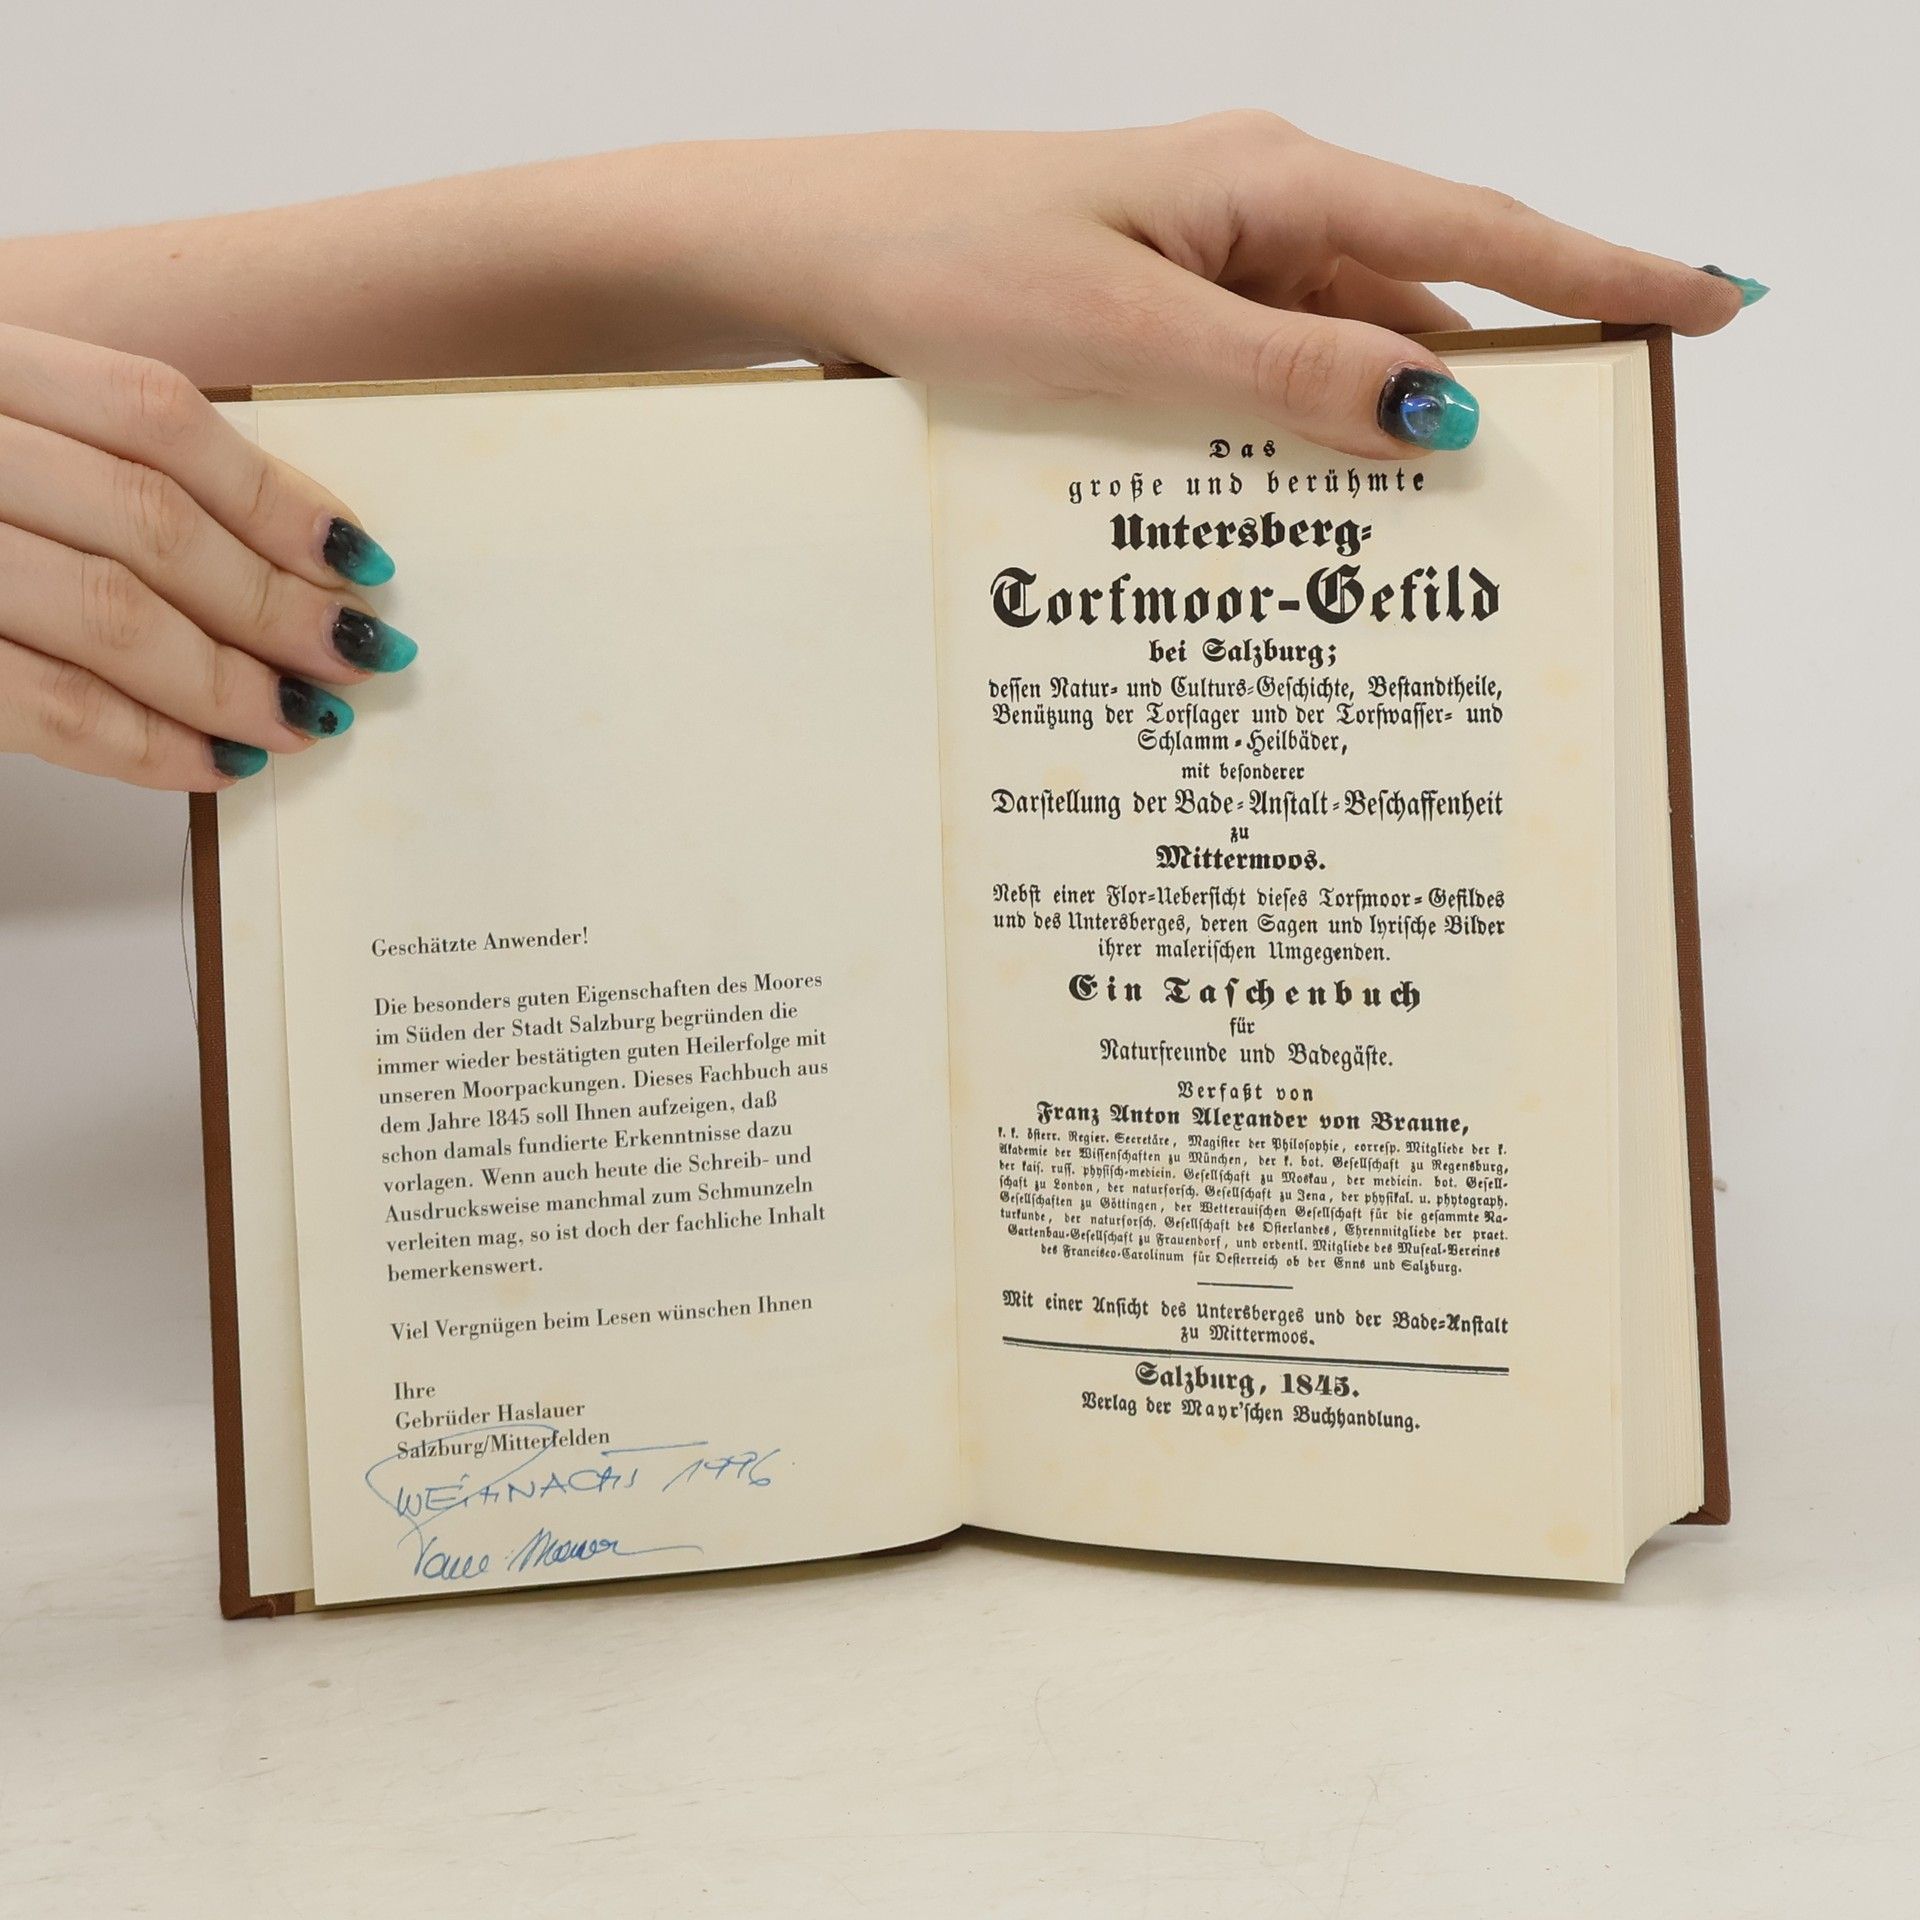 Geschätzte Anwender!
Die besonders guten Eigenschaften des Moores
im Süden der Stadt Salzburg begründen die
immer wieder bestätigten guten Heilerfolge mit
unseren Moorpackungen. Dieses Fachbuch aus
dem Jahre 1845 soll Ihnen aufzeigen, daß
schon damals fundierte Erkenntnisse dazu
vorlagen. Wenn auch heute die Schreib- und
Ausdrucksweise manchmal zum Schmunzeln
verleiten mag, so ist doch der fachliche Inhalt
bemerkenswert.
Viel Vergnügen beim Lesen wünschen Ihnen
Ihre
Gebrüder Haslauer
Salzburg/Mitterfelden
1996
Das
große und berühmte
Untersberg-
Torfmoor-Gefild
bei Salzburg;
dessen Natur- und Culturs-Geschichte, Bestandtheile,
Benützung der Torflager und der Torfwasser- und
Schlamm-Heilbäder,
mit besonderer
Darstellung der Bade-Anstalt-Beschaffenheit
zu
Mittermoos.
Nebst einer Flor-Uebersicht dieses Torfmoor-Gefildes
und des Untersberges, deren Sagen und lyrische Bilder
ihrer malerischen Umgegenden.
Ein Taschenbuch
für
Naturfreunde und Badegäste.
Verfaßt von
Franz Anton Alexander von Braune,
k. k. österr. Regier. Secretäre, Magister der Philosophie, corresp. Mitgliede der k.
Akademie der Wissenschaften zu München, der k. bot. Gesellschaft zu Regensburg,
der kais. russ. physisch-medicin. Gesellschaft zu Moskau, der medicin. bot. Gesell-
schaft zu London, der naturforsch. Gesellschaft zu Jena, der physikal. u. phytograph.
Gesellschaften zu Göttingen, der Wetterauischen Gesellschaft für die gesammte Na-
turkunde, der naturforsch. Gesellschaft des Osterlandes, Ehrenmitgliede der praet.
Gartenbau-Gesellschaft zu Frauendorf, und ordentl. Mitgliede des Museal-Vereines
des Francisco-Carolinum für Oesterreich ob der Enns und Salzburg.
Mit einer Ansicht des Untersberges und der Bade-Anstalt
zu Mittermoos.
Salzburg, 1845.
Verlag der Mayr'schen Buchhandlung.